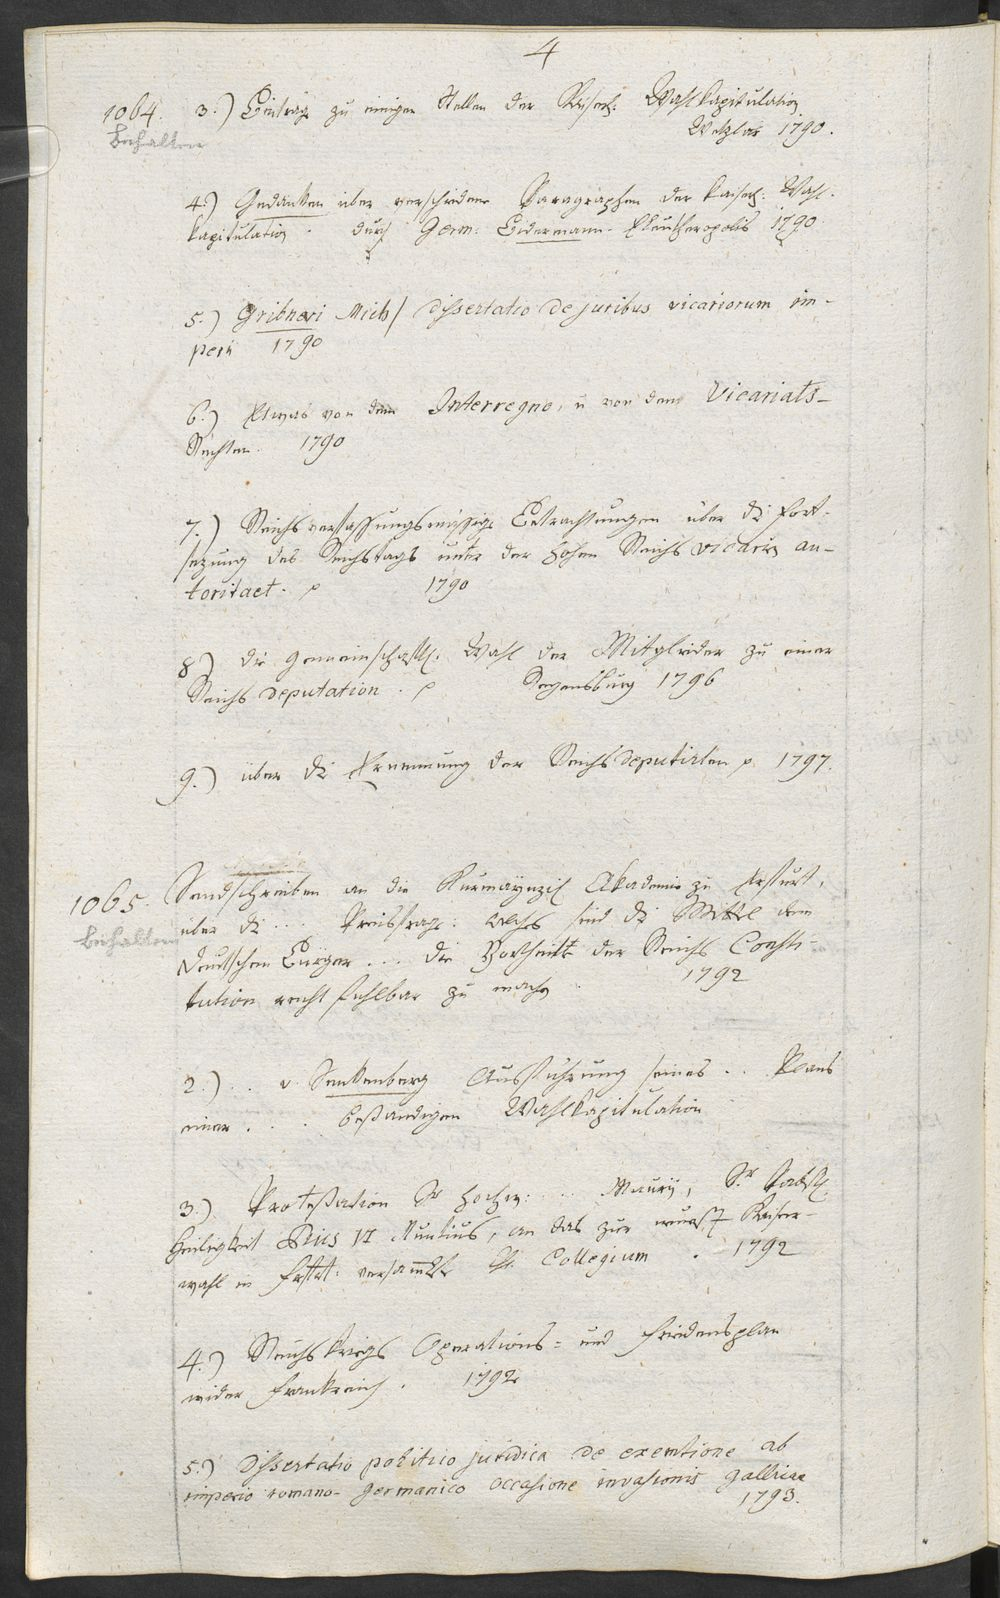 4
1064. 3.) Beiträge zu einigen Stellen der Kaiserl: Wahlkapitulation
behalten
Wetzlar 1790.
4.) Gedanken über verschiedene Paragraphen der kaiserl: Wahl-
kapitulation. durch Germ: Biedermann. Eleutheropolis 1790
5.) Gribneri Mich/ dissertatio de juribus vicariorum im-
perii 1790
6.) Etwas von dem Interregno, u von dem Vicariats-
Rechten. 1790
7.) Reichsverfassungsmässige Betrachtungen über die Fort-
sezung des Reichstags unter der hohen Reichs vicarien au-
toritaet. p 1790
8.) die gemeinschaftl. Wahl der Mitglieder zu einer
Reichs deputation. p Regensburg 1796
9.) über die Ernennung der Reichs deputirten p 1797.
1065. Sendschreiben an die Kurmaynzisch Akademie zu Erfurt,
behalten
über die ... Preisfrage: welches sind die Mittel dem
deutschen Bürger ... die Vortheile der Reichs Consti-
tution recht fühlbar zu machen 1792
2.) .. v. Senkenberg Ausführung seines .. Plans
einer ... beständigen Wahlkapitulation
3.) Protestation Sr Hochw: .. Maury, Sr Päbstl.
Heiligkeit Pius VI Nuntius, an das zur Kaiser-
wahl in versammelte Collegium. 1792
4.) Reichskriegs Operations- und Friedensplan
wider Frankreich. 1792
5.) Dissertatio politico juridica de exemtione ab
imperio romano-germanico occasione invasionis gallicae
1793.